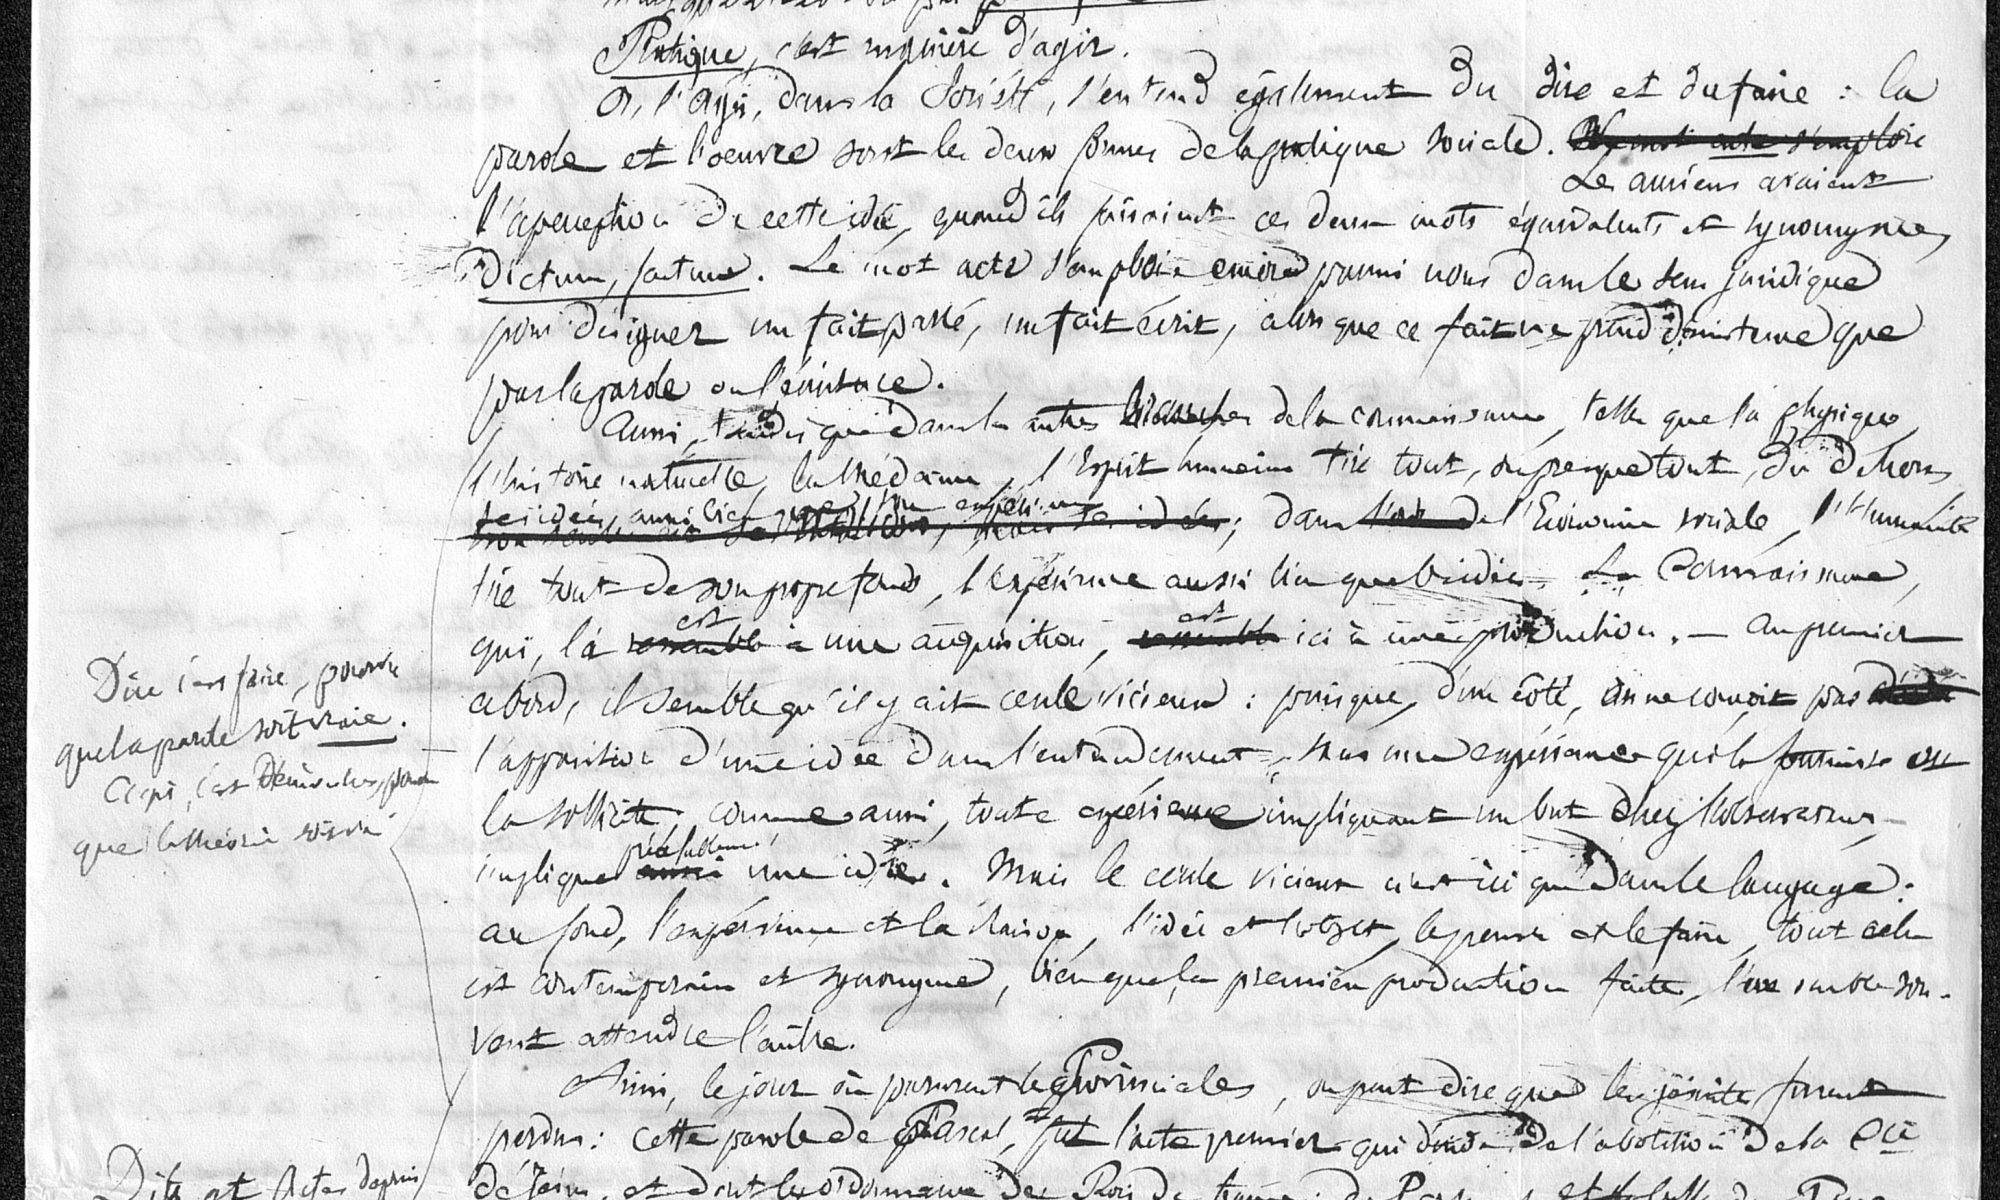 Pratique, c'est manière d'agir.
Or, l'Agir, dans la Société, s'entend également du dire et du faire : la
parole et l'oeuvre sont les deux formes de la pratique sociale. Le mot acte s'emploie
Les anciens avaient
l'aperception de cette idée, quand ils faisaient ces deux mots équivalents et synonymes,
Dictum, factum. Le mot acte s'emploie encore parmi nous dans le sens juridique
pour désigner un fait passé, un fait écrit, alors que ce fait ne prend d'existence que
par la parole ou l'écriture.
Aussi, tandis que dans les autres branches de la connaissance, telles que la physique,
l'histoire naturelle, la médecine, l'Esprit humain tire tout, ou presque tout, du dehors
ses idées, aussi bien que son expérience
ses idées ; dans l'ordre de l'Economie sociale, l'Humanité
tire tout de son propre fonds, l'expérience aussi bien que les idées. La Connaissance,
est est
qui, là ressemble à une acquisition, ressemble ici à une production. — Au premier
abord, il semble qu'il y ait cercle vicieux : puisque, d'un côté, on ne conçoit pas
l'apparition d'une idée dans l'entendement, sans une expérience qui la fournisse ou
la sollicite, comme aussi, toute expérience impliquant un but chez l'observateur,
préalablement
implique aussi une idée. Mais le cercle vicieux n'est ici que dans le langage :
au fond, l'expérience et la Raison, l'idée et l'objet, le penser et le faire, tout cela
est contemporain et synonyme, bien que, la première production faite, l'un semble sou-
vent attendre l'autre.
Ainsi, le jour où parurent les Provinciales, on peut dire que les jésuites furent
perdus : cette parole de Pascal, fut l'acte premier qui décida de l'abolition de la Cie
de Jésus, et dont les ordonnances des Rois de
Dire c'est faire, pourvu
que la parole soit vraie.
que la théorie soit
Dits et Actes depuis